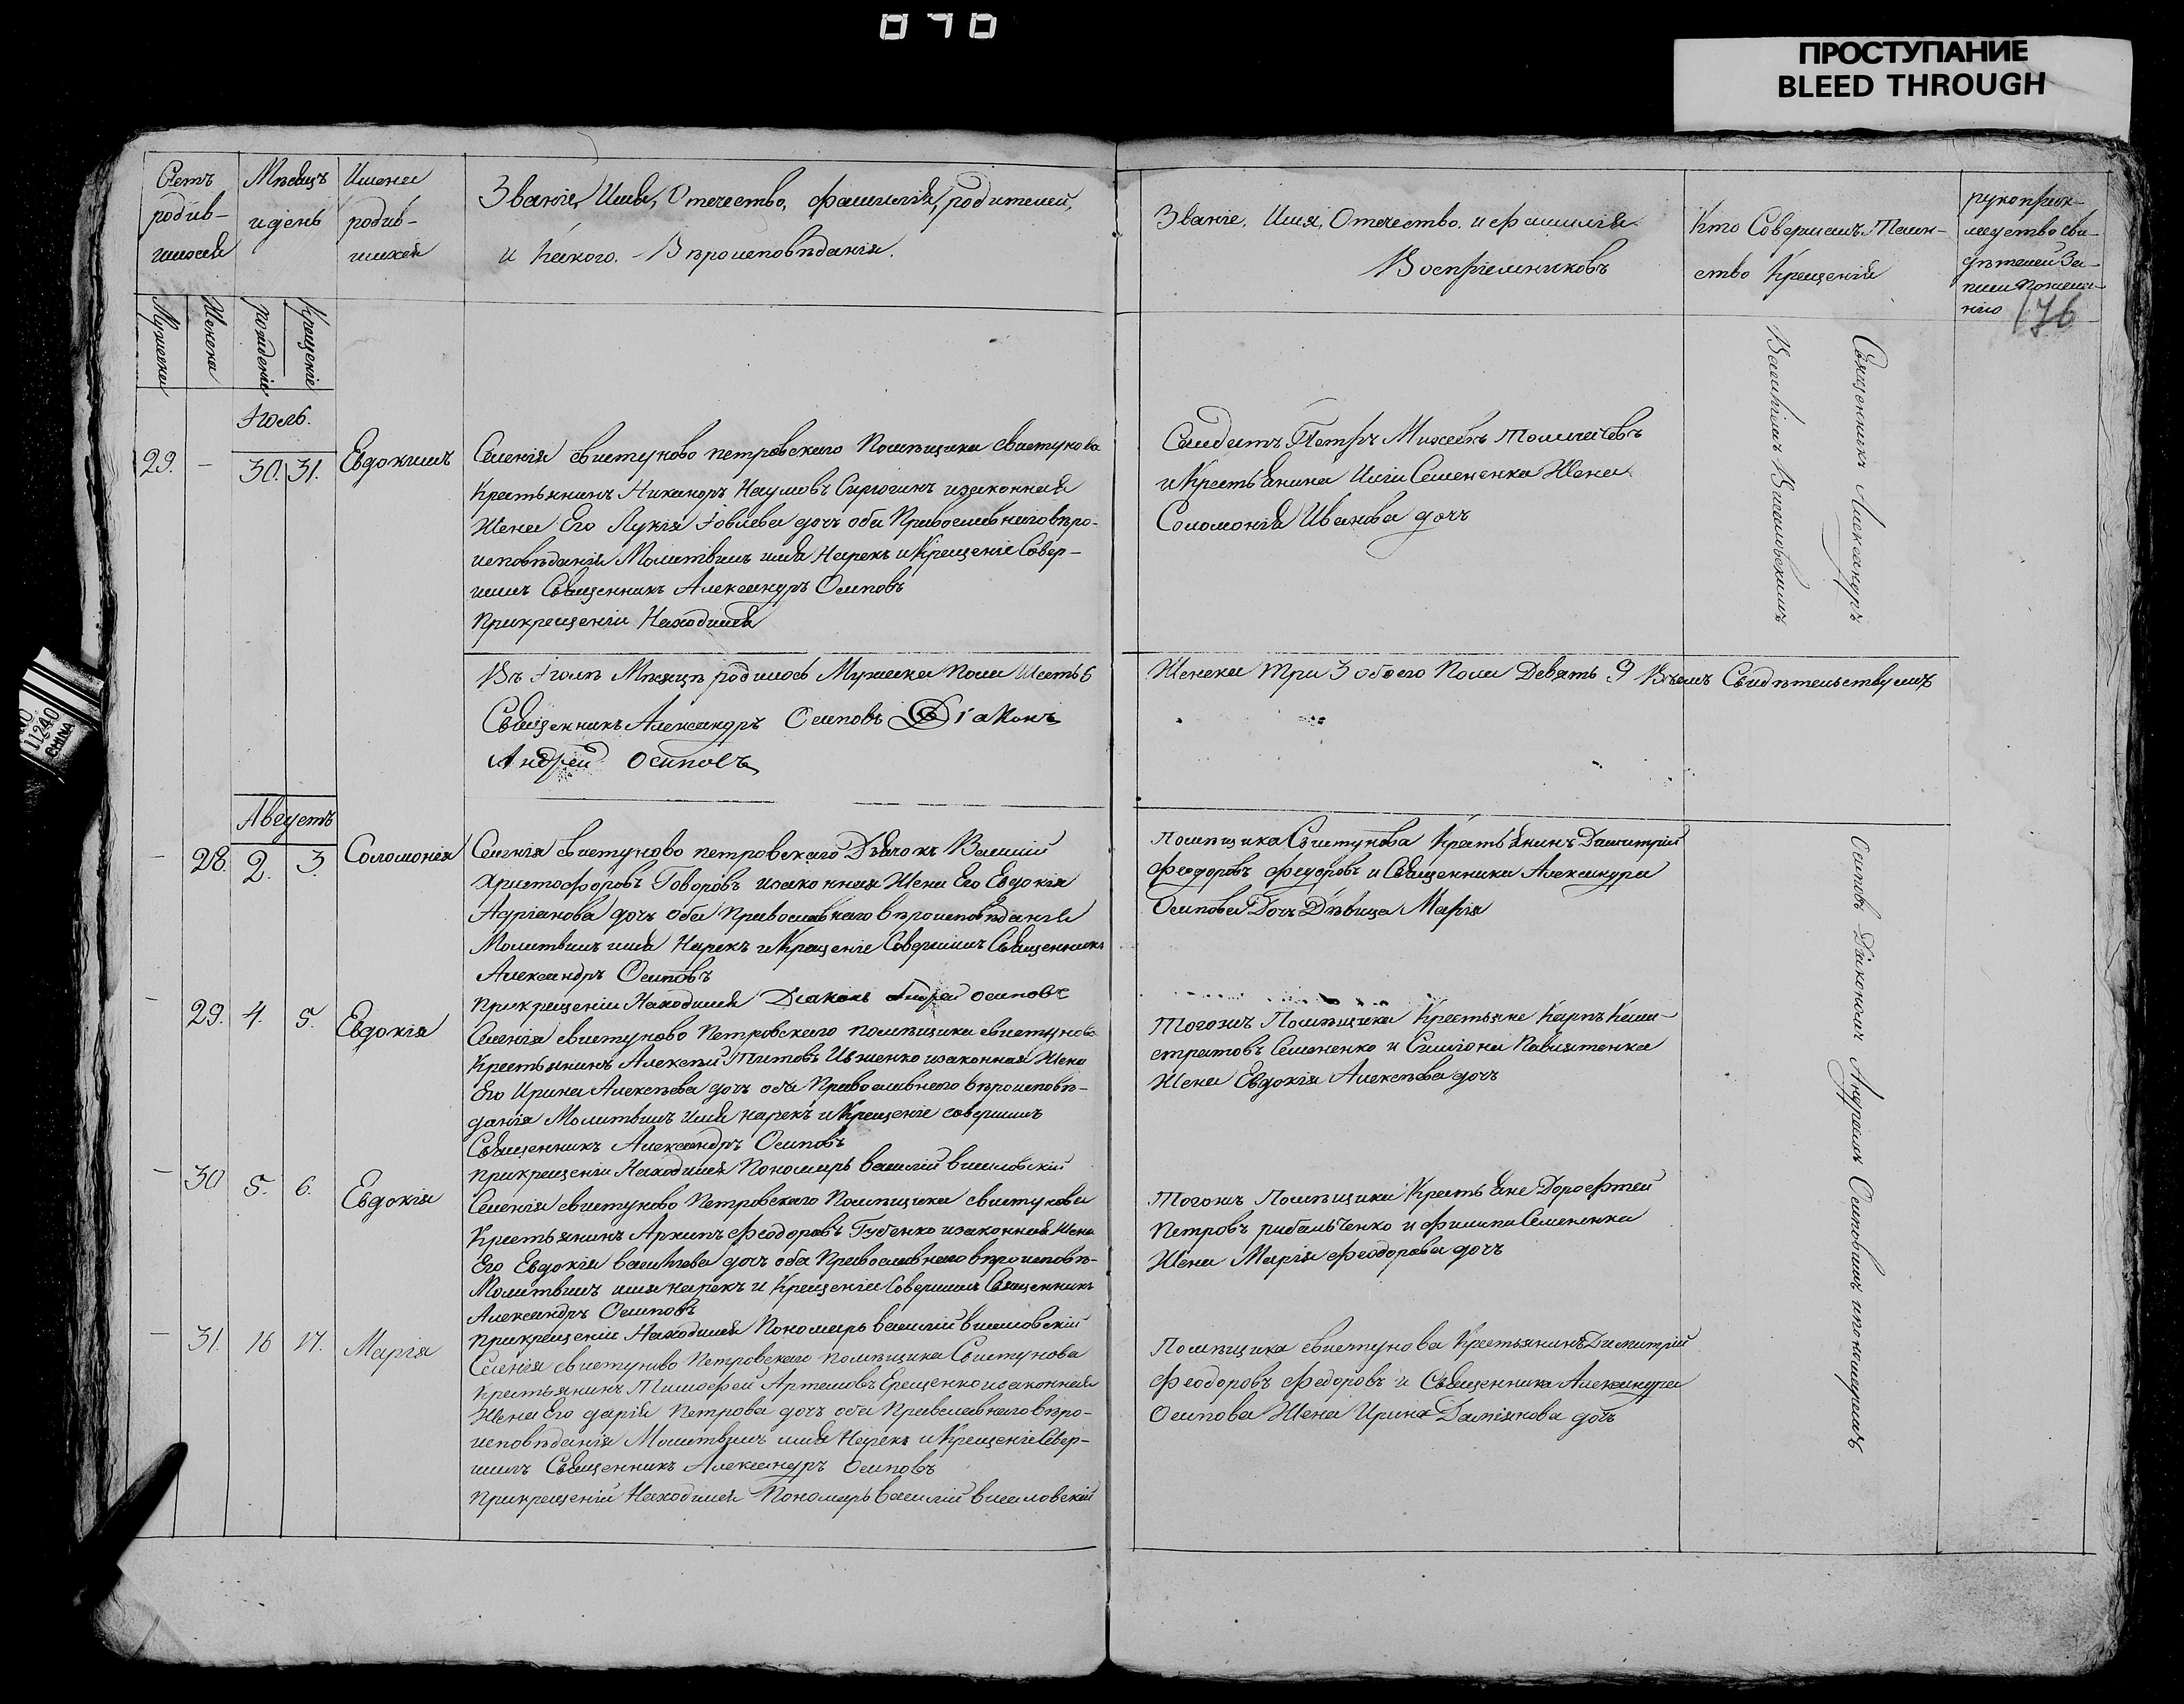 070
ПРОСТУПАНИЕ
BLEED THROUGH
Счетъ родив-шихся
Мѣсяцъ и день
Имена родив-шихся
Званіе, Имя, Отечество, фамилія, родителей,
и какого. Вѣроисповѣданія.
Званіе, Имя, Отечество. и фамилія
Воспріемниковъ
Кто Совершалъ Таин-
ство Крещенія
рукоприк-
ладство сви-
дѣтелей За-
писи Пожела-
нію
176
Мужеска
Женска
рожденіе
Крещеніе
Іюль.
29.
30.
31.
Евдокимъ
Селенія свистуново петровскаго Помѣщика свистунова
Крестьянинъ Никаноръ Наумовъ изаконная
Жена Его Лукія Іовлева дочъ оба Православнаго вѣро-
исповѣданія Молитвилъ имя Нарекъ и Крещеніе Совер-
шилъ Священникъ Александръ Осиповъ
Прикрещеніи Находился
Петръ Михеевъ
и Крестьянина Семененка Жена
Соломонія Иванова дочъ
Священникъ Александръ
Василіемъ Висиловскимъ
Въ Іюлѣ Мѣсяцѣ родилось Мужска Пола Шесть 6
Женска Три 3 обоего Пола Девять 9 Въчемъ Свидѣтельствуемъ
Священникъ Александръ Осиповъ Діаконъ
Андрей Осиповъ
Августъ
28.
2.
3.
Соломонія
Селенія свистуново петровскаго Дьячокъ Василій
Христофоровъ Говоровъ изаконная Жена Его Евдокія
Адріанова дочъ оба Православнаго вѣроисповѣданія
Молитвилъ имя Нарекъ и Крещеніе Совершилъ Священникъ
Александръ Осиповъ
Прикрещеніи Находился Діаконъ Андрей осиповъ
помѣщика Свистунова Крестьянинъ Димитрій
Феодоровъ Федоровъ и Священника Александра
Осипова Дочъ Дѣвица Марія
29.
4.
5.
Евдокія
Селенія свистуново Петровскаго помѣщика свистунова
Крестьянинъ Алексѣй Титовъ Ивженко изаконная Жена
Его Ирина Алексѣева дочъ оба Православнаго вѣроисповѣ-
данія Молитвилъ имя нарекъ и Крещеніе совершилъ
Священникъ Александръ Осиповъ
прикрещеніи Находился Пономарь василій висиловскій
Тогожъ Помѣщика Крестьяне Карпъ Кали-
стратовъ Семененко и Симіона Павлятенка
Жена Евдокія Алексѣева дочъ
30
5.
6.
Евдокія
Селенія свистуново Петровскаго Помѣщика свистунова
Крестьянинъ Архипъ Феодоровъ Губенко изаконная Жена
Его Евдокія василіева дочъ оба Православнаго вѣроисповѣ-
Молитвилъ имя нарекъ и Крещеніе Совершилъ Священникъ
Александръ Осиповъ
прикрещеніи Находился Пономарь василій висиловскій
Тогожъ Помѣщика Крестьяне Дорофтей
Петровъ рибальченко и Филипа Семененка
Жена Марія Феодорова дочъ
31.
16
17.
Марія
Селенія свистуново Петровскаго помѣщика Свистунова
Крестьянинъ Тимофей Артемовъ Ерещенко изаконная
Жена Его дарія Петрова дочъ оба Православнаго вѣро-
исповѣданія Молитвилъ имя Нарекъ и Крещеніе Совер-
шилъ Священникъ Александръ Осиповъ
прикрещеніи Находился Пономарь василій висиловскій
Помѣщика свистунова Крестьянинъ Димитрій
Феодоровъ Федоровъ и Священника Александра
Осипова Жена Ирина Даміянова дочъ
Осиповъ Діакономъ Андреемъ Осиповымъ ипономаремъ
11240
CHINA